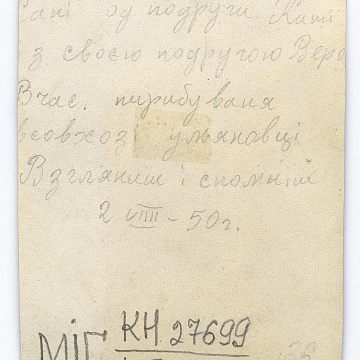 од подруги Каті
з своєю подручою Веро
Вчас. пирибуваня
всовхоз ульяновці
Взгляниш і спомній
2 VIII - 50г.
МІГ КН 27699